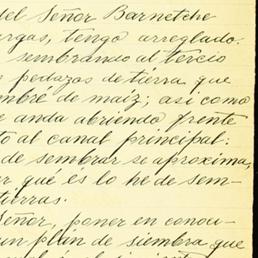 del Señor Barnetche
argas, tengo arreglado
sembrando al tercio
s pedazos de tierra que
embré de maíz; asi como
e anda abriendo frente
to al canal principal:
de sembrar se aproxima,
er qué es lo he de sem-
tierras.
Señor, poner en conoci-
un plán de siembra que